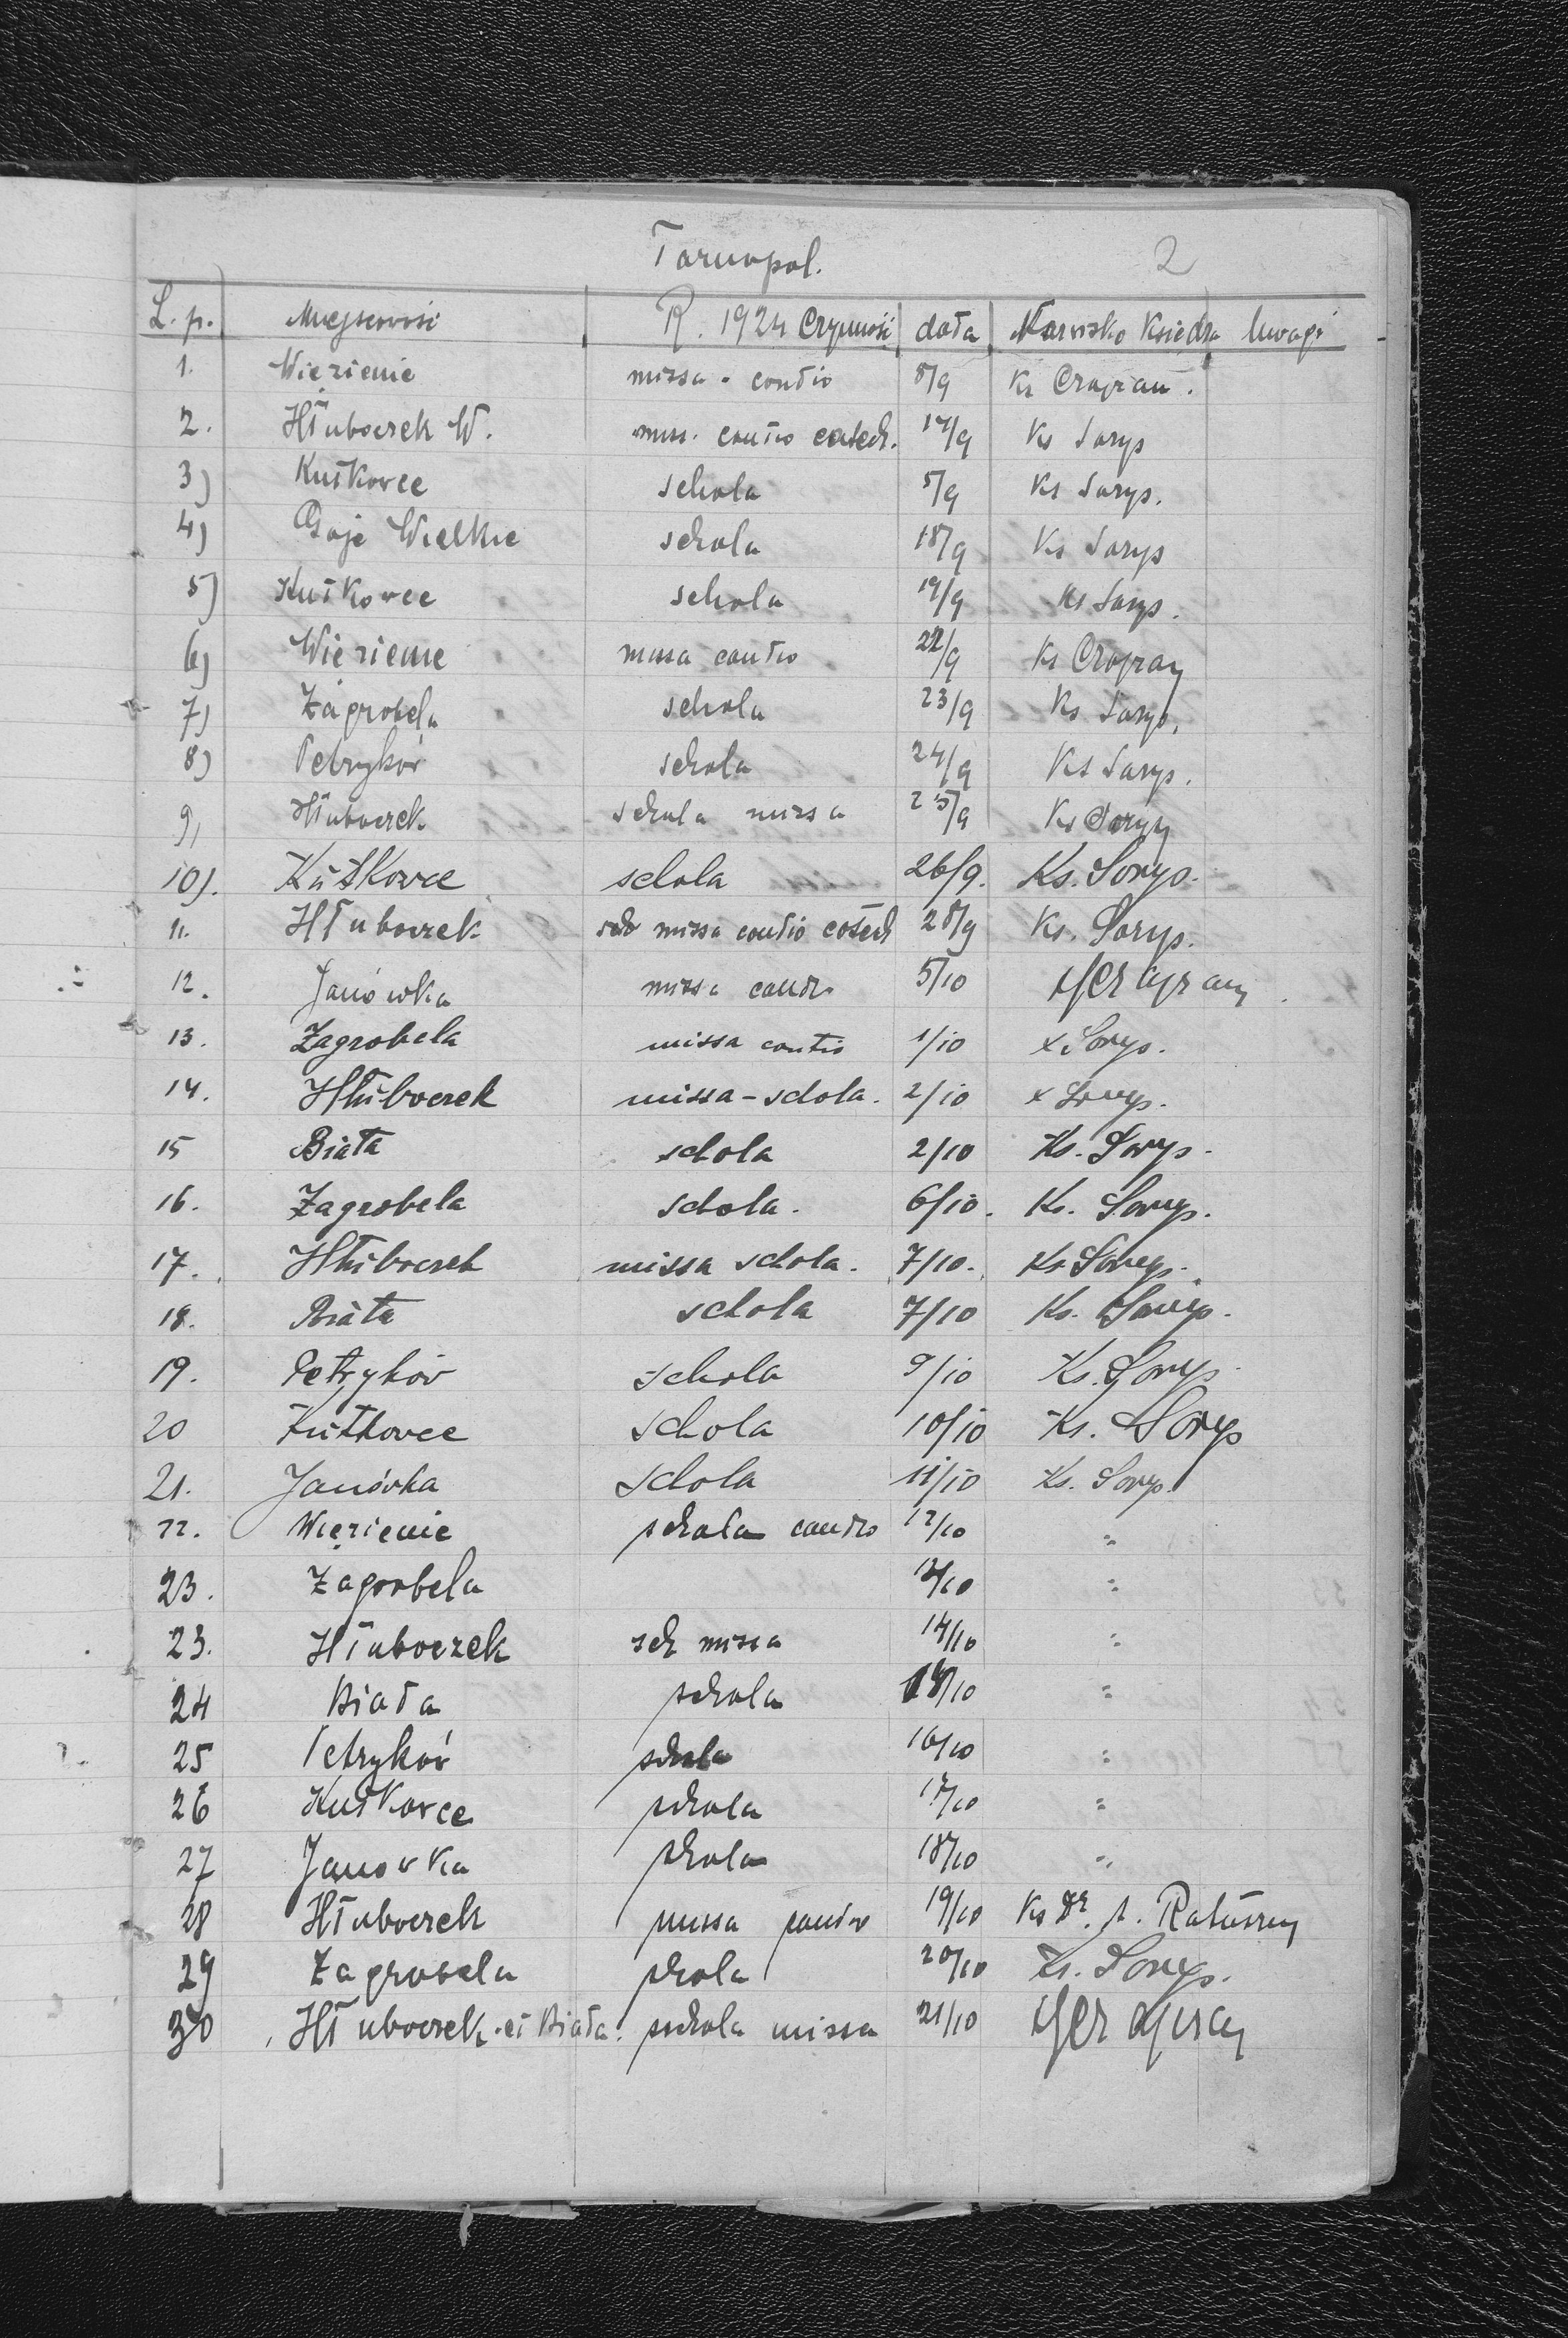 Tarnopol. 2
L. p. Miejscowość R. 1924 Czynność data Nazwisko Księdza Uwagi
1. Więzienie missa - contio 8/9 Ks Czapran.
2. Hłuboczek W. miss. contio catech. 14/9 Ks Sarys
3) Kutkowce schola 5/9 Ks Sarys.
4) Gaje Wielkie schola 18/9 Ks Sarys
5) Kutkowce schola 19/9 Ks Sarys.
6) Więzienie missa contio 22/9 Ks Czapran
7) Zagrobela schola 23/9 Ks Sarys.
8) Petryków schola 24/9 Ks Sarys.
9) Hłuboczek schola missa 25/9 Ks Sarys
10). Kutkowce schola 26/9. Ks. Sorys.
11. Hłuboczek sch missa contio catech 28/9 Ks. Sorys.
12. Janówka missa contio 5/10
13. Zagrobela missa contio 1/10 x Sorys.
14. Hłuboczek missa - schola. 2/10 x Sorys.
15 Biała schola 2/10 Ks. Sorys.
16. Zagrobela schola. 6/10. Ks. Sorys.
17. Hłuboczek missa schola. 7/10. Ks Sorys.
18. Biała schola 7/10 Ks. Sorys.
19. Petryków schola 9/10 Ks. Sorys.
20 Kutkowce schola 10/10 Ks. Sorys
21. Janówka schola 11/10 Ks. Sorys.
22. Więzienie schola contio 12/10 "
23. Zagrobela 13/10 "
23. Hłuboczek sch missa 14/10 "
24 Biała schola 14/10 "
25 Petryków schola 16/10 "
26 Kutkowce schola 17/10 "
27 Janowka schola 18/10 "
28 Hłuboczek missa contio 19/10 Ks Dr. A. Ratuszny
29 Zagrobela schola 20/10 Ks. Sorys.
30 Hłuboczek et Biała. schola missa 21/10